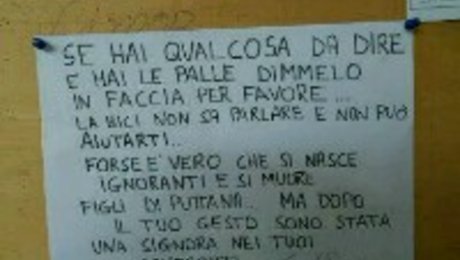 SE HAI QUALCOSA DA DIRE
E HAI LE PALLE DIMMELO
IN FACCIA PER FAVORE...
LA BICI NON SA PARLARE E NON PUÒ
AIUTARTI..
FORSE E' VERO CHE SI NASCE
IGNORANTI E SI MUORE
FIGLI DI PUTTANA.. MA DOPO
IL TUO GESTO SONO STATA
UNA SIGNORA NEI TUOI